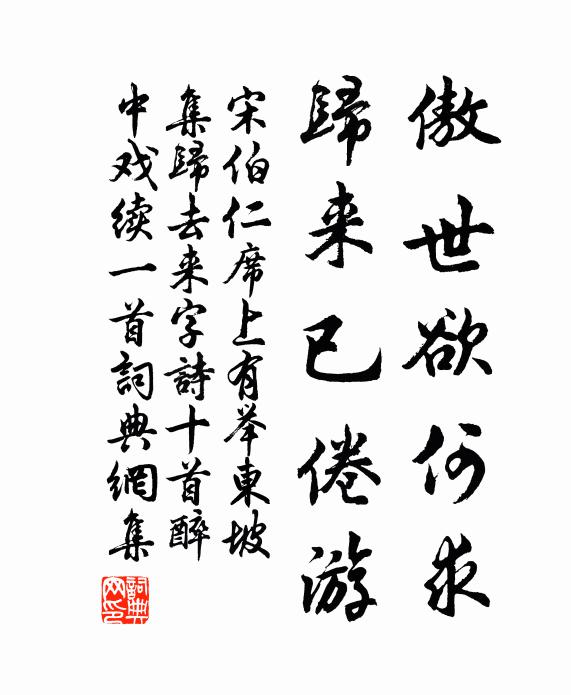 傲世欲何求
歸来已倦游
宋伯仁席上有举東坡
集歸去来字詩十首醉
中戏续一首詞典網集
詞典
网印